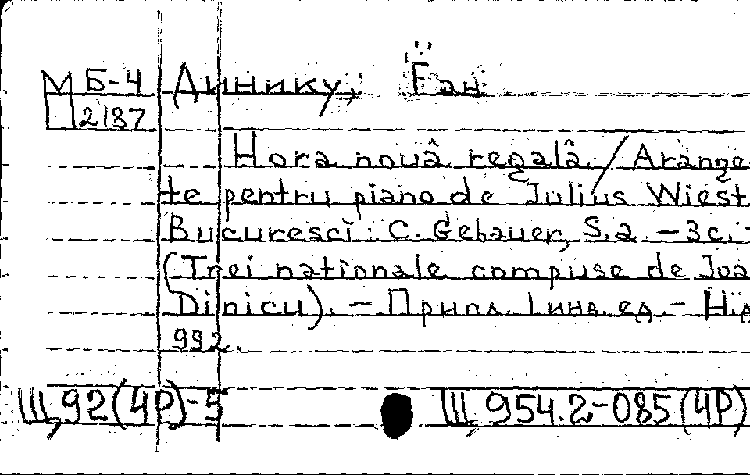 МБ-4 Динику, Ёан
2187
Hora nouâ regalâ. / Arange
te pentru piano de Julius Wiest
Bucuresci: C. Gebauer, S.a. - 3c. -
(Trei nationale compuse de Joa
Dinicu). - Припл. 1 инв. ед. - Нд
992.
Ш,92(4Р)-5 Ш, 954.2-085(4Р)